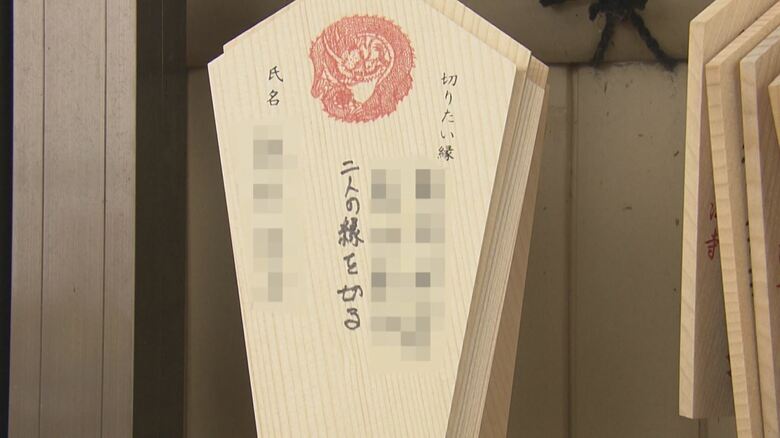 切りたい縁
二人の縁を切る
氏名
寺